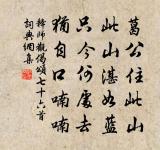 葛公住此山
此山湛如藍
只今何處去
猶自口喃喃
釋師觀偈頌七十六首
詞典網集